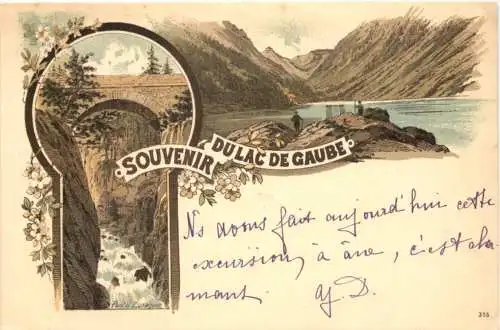 SOUVENIR DU LAC DE GAUBE
Ns avons fait aujourd'hui cette
excursion, à âne, c'est cha
mant. Y. D.
316